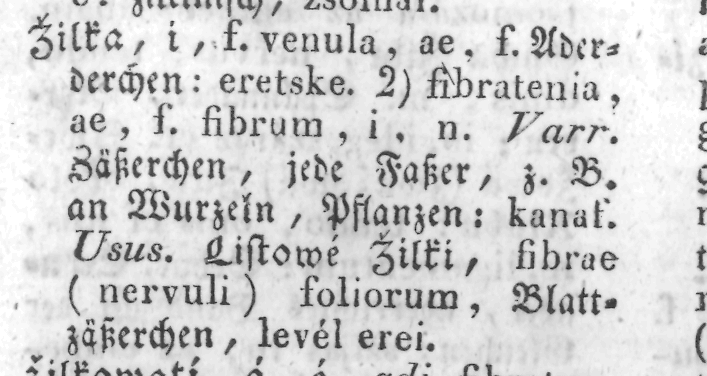 zsomár.
Žilka, i, f. venula, ae, f. Ader⸗
derchen: eretske. 2) fibratenia,
ae, f. fibrum, i, n. Varr.
Zäßerchen, jede Faßer, z. B.
an Wurzeln, Pflanzen: kanaf.
Usus. Listowé Žilki, fibrae
(nervuli) foliorum, Blatt⸗
zäßerchen, levél erei.